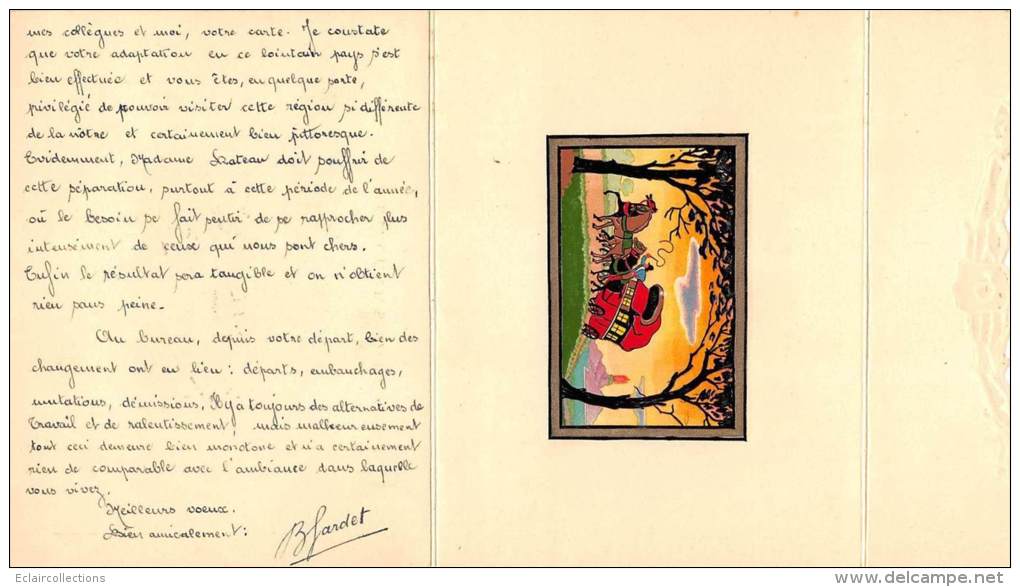 mes collègues et moi, votre carte. Je constate
que votre adaptation en ce lointain pays s'est
bien effectuée et vous êtes, en quelque sorte,
privilégié de pouvoir visiter cette région si différente
de la nôtre et certainement bien pittoresque.
Evidemment, Madame Lateau doit souffrir de
cette séparation, surtout à cette période de l'année,
où le besoin se fait sentir de se rapprocher plus
intensément de ceux qui nous sont chers.
Enfin le résultat sera tangible et on n'obtient
rien sans peine.
Au bureau, depuis votre départ, bien des
changement ont eu lieu : départs, embauchages,
mutations, démissions, Il y a toujours des alternatives de
travail et de ralentissement, mais malheureusement
tout ceci demeure bien monotone et n'a certainement
rien de comparable avec l'ambiance dans laquelle
vous vivez.
Meilleurs voeux.
Bien amicalement :
B Gardet
Eclaircollections
delcampe.net